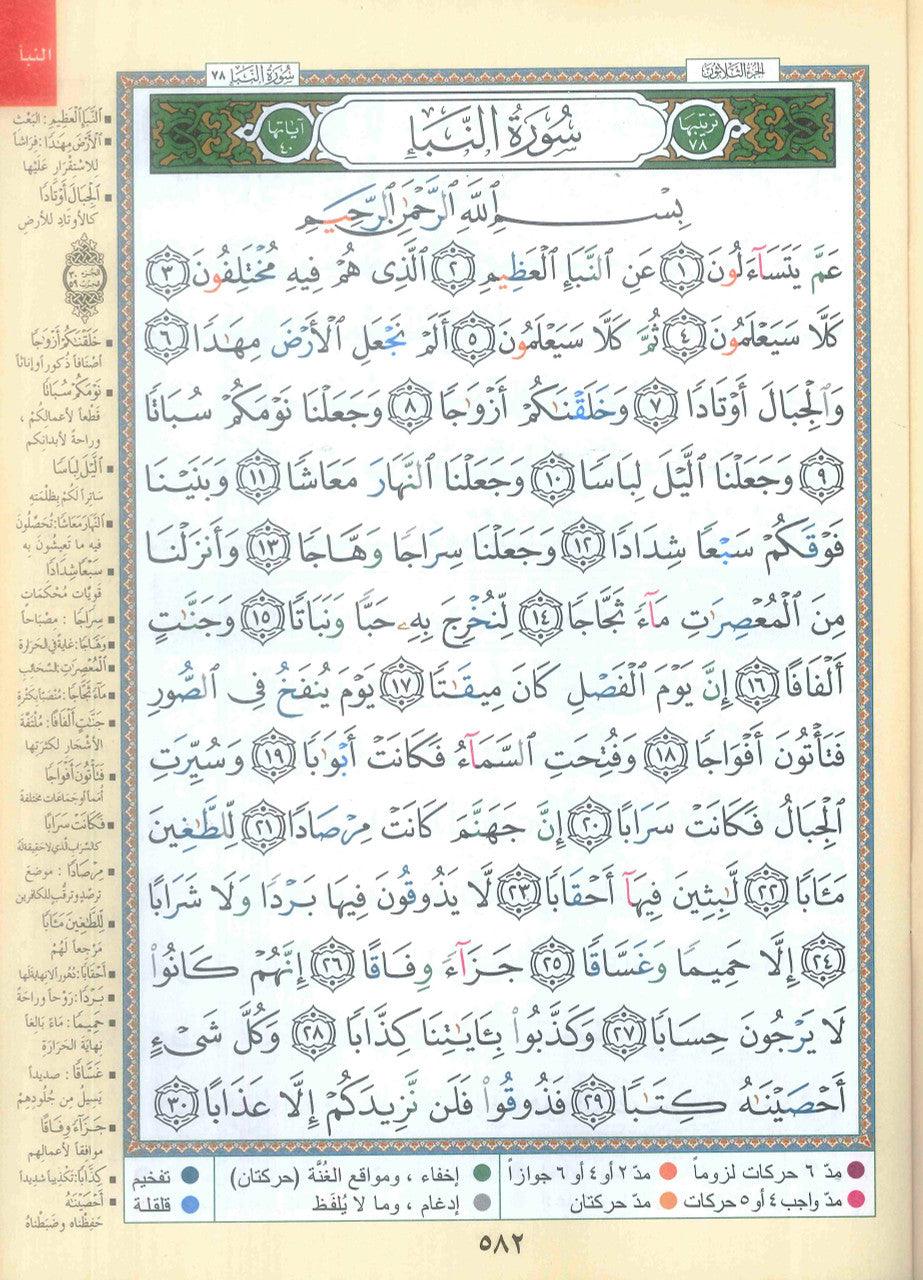 النبأ
الجزء الثلاثون
سورة النبأ ٧٨
ترتيبها ٧٨
سُورَةُ النَّبَإِ
آياتها ٤٠
بِسْمِ ٱللَّهِ ٱلرَّحْمَٰنِ ٱلرَّحِيمِ
عَمَّ يَتَسَآءَلُونَ ١ عَنِ ٱلنَّبَإِ ٱلْعَظِيمِ ٢ ٱلَّذِى هُمْ فِيهِ مُخْتَلِفُونَ ٣
كَلَّا سَيَعْلَمُونَ ٤ ثُمَّ كَلَّا سَيَعْلَمُونَ ٥ أَلَمْ نَجْعَلِ ٱلْأَرْضَ مِهَٰدًا ٦
وَٱلْجِبَالَ أَوْتَادًا ٧ وَخَلَقْنَٰكُمْ أَزْوَٰجًا ٨ وَجَعَلْنَا نَوْمَكُمْ سُبَاتًا
٩ وَجَعَلْنَا ٱلَّيْلَ لِبَاسًا ١٠ وَجَعَلْنَا ٱلنَّهَارَ مَعَاشًا ١١ وَبَنَيْنَا
فَوْقَكُمْ سَبْعًا شِدَادًا ١٢ وَجَعَلْنَا سِرَاجًا وَهَّاجًا ١٣ وَأَنزَلْنَا
مِنَ ٱلْمُعْصِرَٰتِ مَآءً ثَجَّاجًا ١٤ لِّنُخْرِجَ بِهِۦ حَبًّا وَنَبَاتًا ١٥ وَجَنَّٰتٍ
أَلْفَافًا ١٦ إِنَّ يَوْمَ ٱلْفَصْلِ كَانَ مِيقَٰتًا ١٧ يَوْمَ يُنفَخُ فِى ٱلصُّورِ
فَتَأْتُونَ أَفْوَاجًا ١٨ وَفُتِحَتِ ٱلسَّمَآءُ فَكَانَتْ أَبْوَٰبًا ١٩ وَسُيِّرَتِ
ٱلْجِبَالُ فَكَانَتْ سَرَابًا ٢٠ إِنَّ جَهَنَّمَ كَانَتْ مِرْصَادًا ٢١ لِّلطَّٰغِينَ
مَـَٔابًا ٢٢ لَّٰبِثِينَ فِيهَآ أَحْقَابًا ٢٣ لَّا يَذُوقُونَ فِيهَا بَرْدًا وَلَا شَرَابًا
٢٤ إِلَّا حَمِيمًا وَغَسَّاقًا ٢٥ جَزَآءً وِفَاقًا ٢٦ إِنَّهُمْ كَانُوا۟
لَا يَرْجُونَ حِسَابًا ٢٧ وَكَذَّبُوا۟ بِـَٔايَٰتِنَا كِذَّابًا ٢٨ وَكُلَّ شَىْءٍ
أَحْصَيْنَٰهُ كِتَٰبًا ٢٩ فَذُوقُوا۟ فَلَن نَّزِيدَكُمْ إِلَّا عَذَابًا ٣٠
النَّبَإِ الْعَظِيمِ: البَعْث
الأَرْضَ مِهَٰدًا: فِرَاشاً
للاسْتِقْرَار عَلَيْها
الْجِبَالَ أَوْتَادًا
كالأَوتادِ للأرضِ
الجزء ٣٠
الحزب ٥٩
خَلَقْنَٰكُمْ أَزْوَٰجًا
أصْنَافاً ذُكوراً وإناثاً
نَوْمَكُمْ سُبَاتًا
قَطْعاً لأعمالِكُمْ ،
وراحةً لأبدانكم
الَّيْلَ لِبَاسًا
سَاتِراً لَكُمْ بِظُلْمَتِهِ
النَّهَارَ مَعَاشًا: تُحَصِّلُونَ
فيه ما تَعيشُونَ به
سَبْعًا شِدَادًا
قَوِيَّات مُحْكَمَات
سِرَاجًا : مِصْبَاحاً
وَهَّاجًا: غاية في الحَرَارة
الْمُعْصِرَٰتِ: السَّحَائِب
مَآءً ثَجَّاجًا: مُنْصَبّاً بكثرة
جَنَّٰتٍ أَلْفَافًا: مُلْتَفَّة
الأشْجَار لكثرتِها
فَتَأْتُونَ أَفْوَاجًا
أُمَماً أو جَمَاعَات مختلفة
فَكَانَتْ سَرَابًا
كالسَّرابِ الذي لا حَقِيقَة لَهُ
مِرْصَادًا : موضِعَ
ترصُّدٍ وترقُّبٍ للكافرين
لِلطَّٰغِينَ مَـَٔابًا
مَرْجِعاً لَهُمْ
أَحْقَابًا: دُهُوراً لا نِهايَة لَها
بَرْدًا: رَوْحاً وراحَةً
حَمِيمًا: مَاءً بَالِغاً
نِهايَةَ الحَرَارَةِ
غَسَّاقًا : صديداً
يَسِيلُ مِن جُلُودِهِمْ
جَزَآءً وِفَاقًا
موافِقاً لأعمالهم
كِذَّابًا: تَكْذِيباً شديداً
أَحْصَيْنَٰهُ
حَفِظْناه وضَبَطْناهُ
مدّ ٦ حركات لزوماً
مدّ ٢ أو ٤ أو ٦ جوازاً
إخفاء ، ومواقع الغُنَّة (حركتان)
تفخيم
مدّ واجب ٤ أو ٥ حركات
مدّ حركتان
إدغام ، وما لا يُلفَظ
قلقلة
٥٨٢